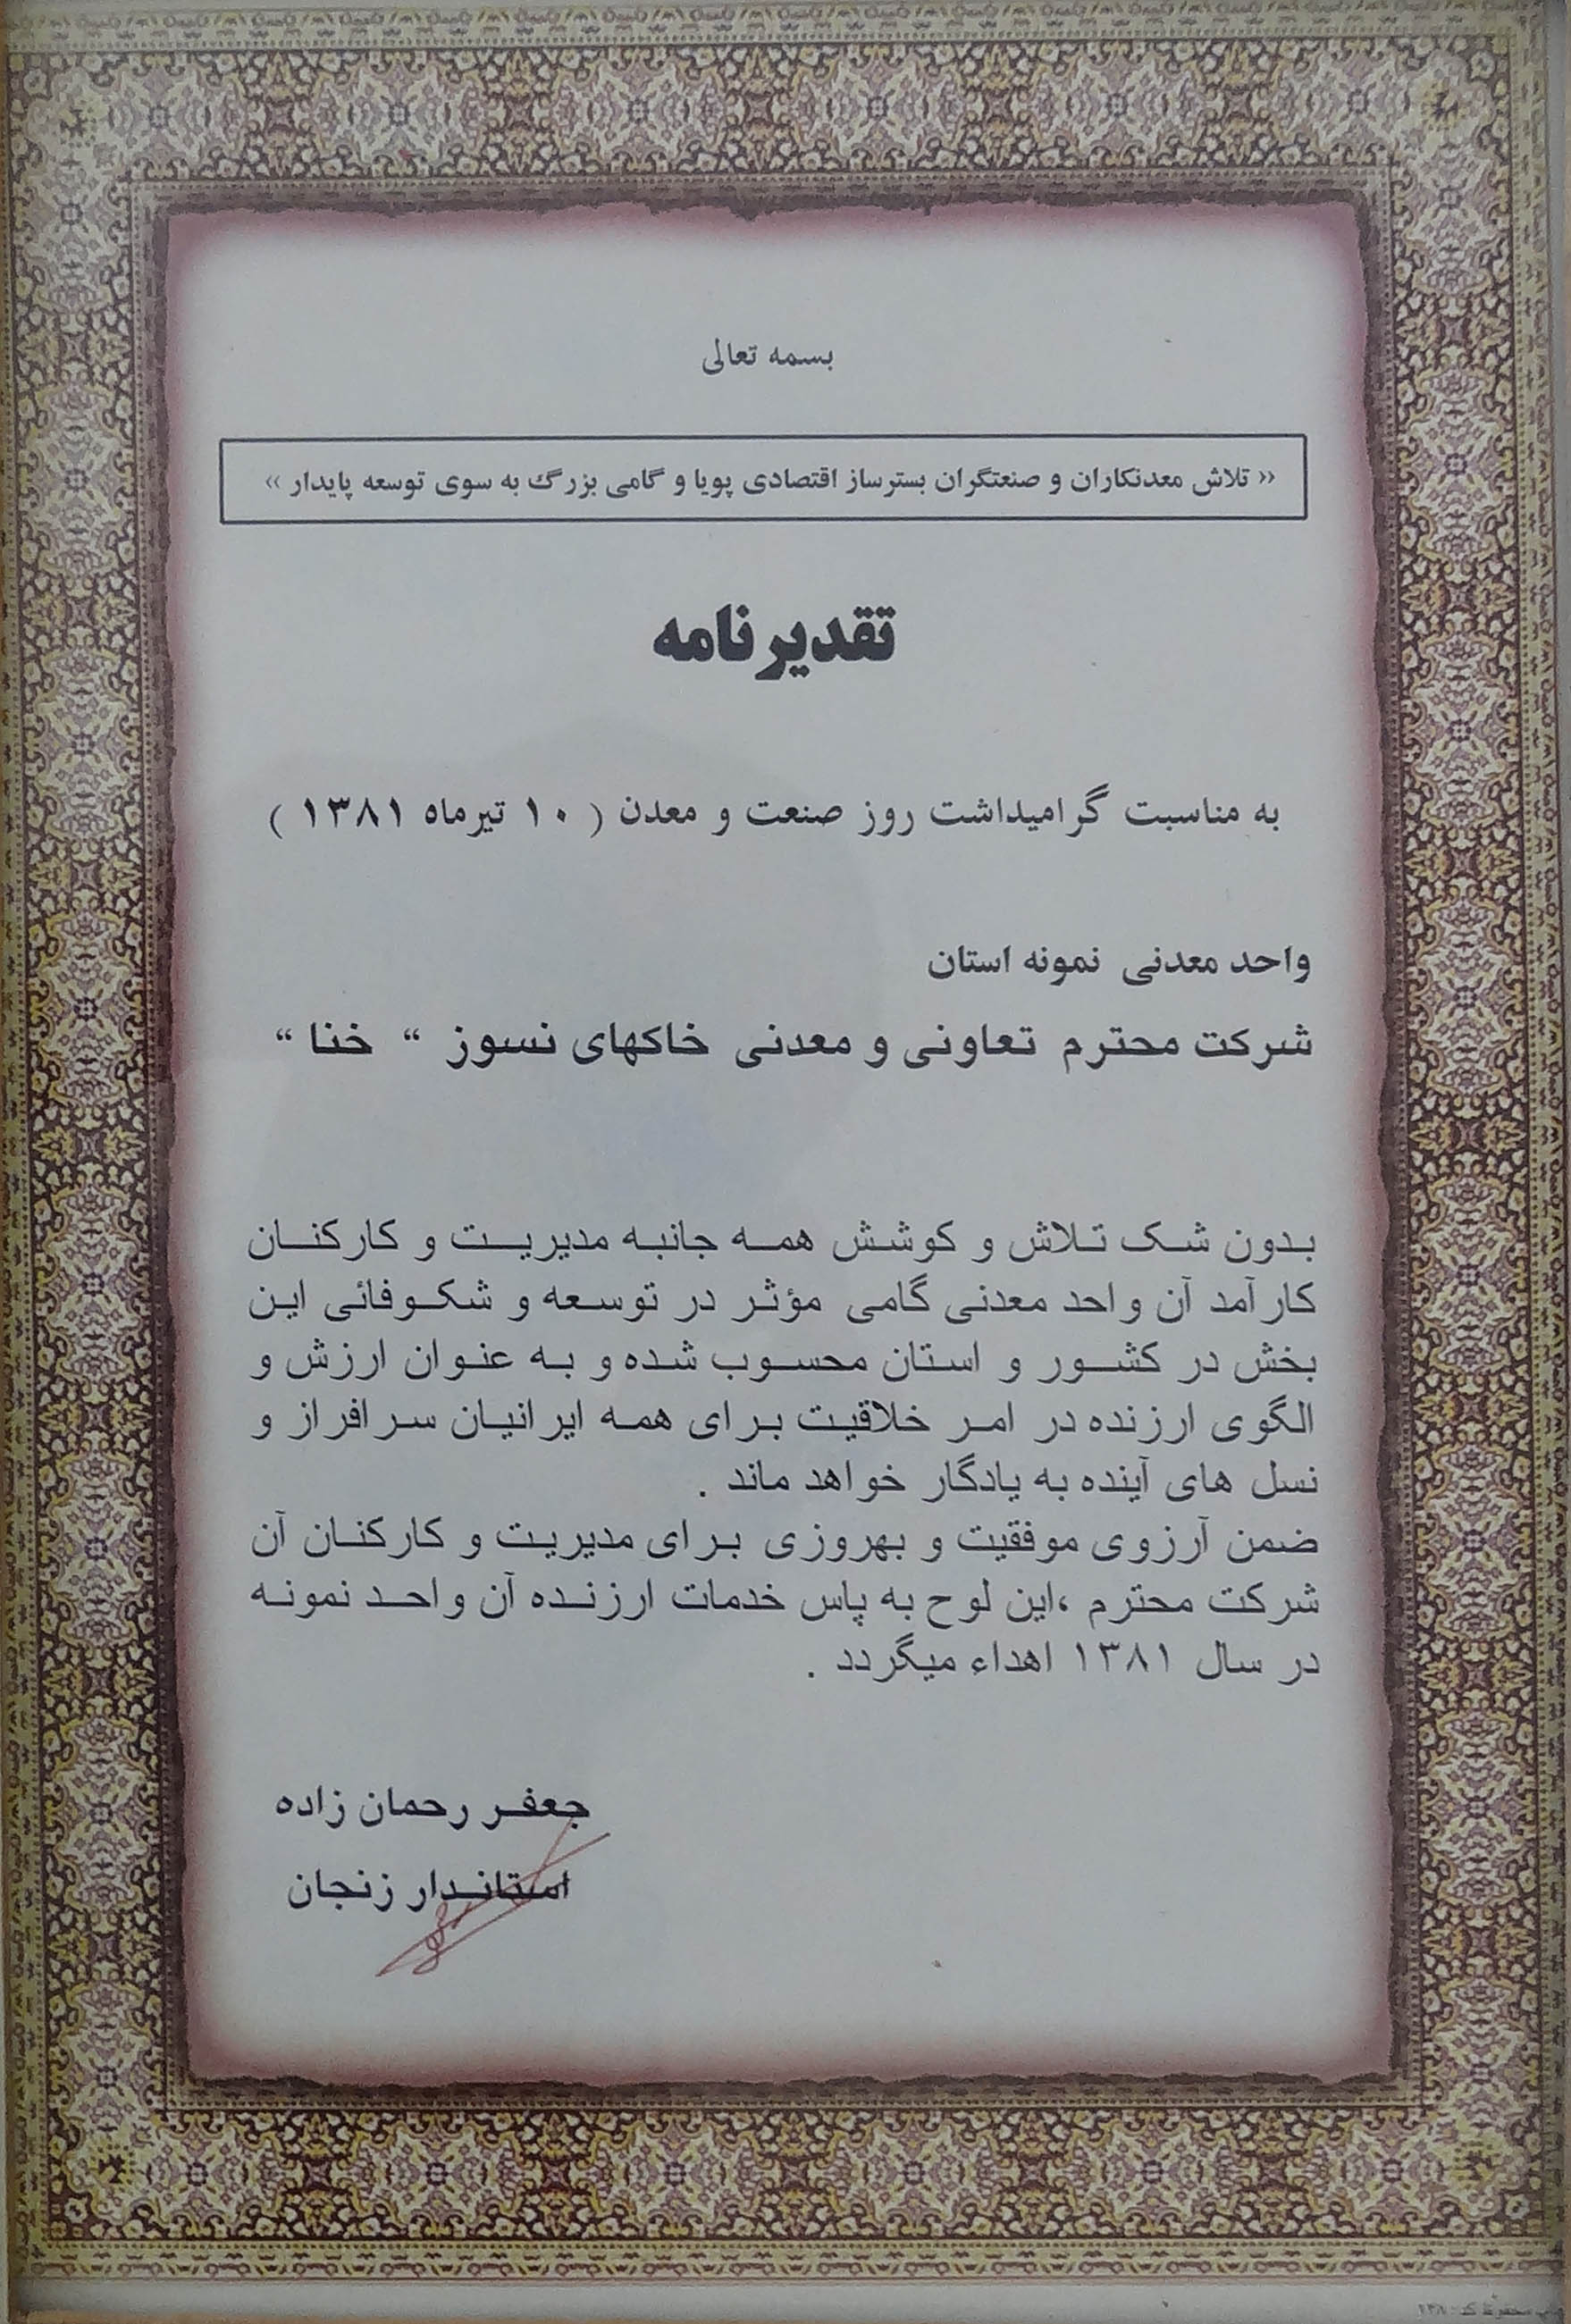 بسمه تعالی
« تلاش معدنکاران و صنعتگران بسترساز اقتصادی پویا و گامی بزرگ به سوی توسعه پایدار »
تقدیرنامه
به مناسبت گرامیداشت روز صنعت و معدن ( ۱۰ تیرماه ۱۳۸۱ )
واحد معدنی نمونه استان
شرکت محترم تعاونی و معدنی خاکهای نسوز “ خنا “
بدون شک تلاش و کوشش همه جانبه مدیریت و کارکنان
کارآمد آن واحد معدنی گامی مؤثر در توسعه و شکوفائی این
بخش در کشور و استان محسوب شده و به عنوان ارزش و
الگوی ارزنده در امر خلاقیت برای همه ایرانیان سرافراز و
نسل های آینده به یادگار خواهد ماند .
ضمن آرزوی موفقیت و بهروزی برای مدیریت و کارکنان آن
شرکت محترم ،این لوح به پاس خدمات ارزنده آن واحد نمونه
در سال ۱۳۸۱ اهداء میگردد .
جعفر رحمان زاده
استاندار زنجان